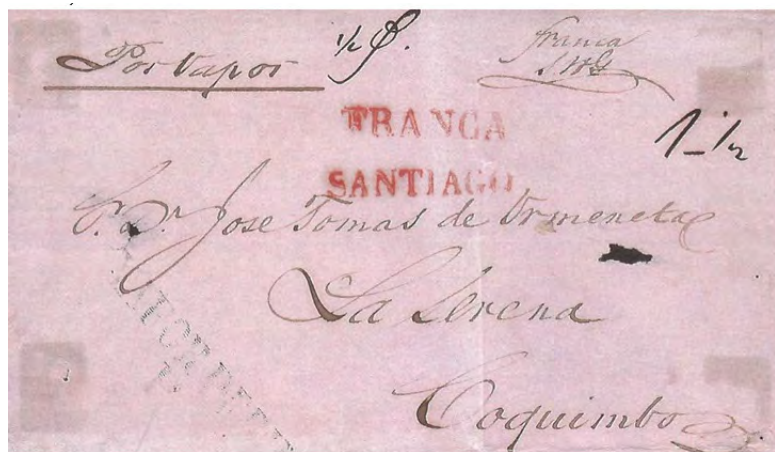 Por vapor
franca
FRANCA
SANTIAGO
1-½
S. Dn. Jose Tomas de Urmeneta
La Serena
Coquimbo